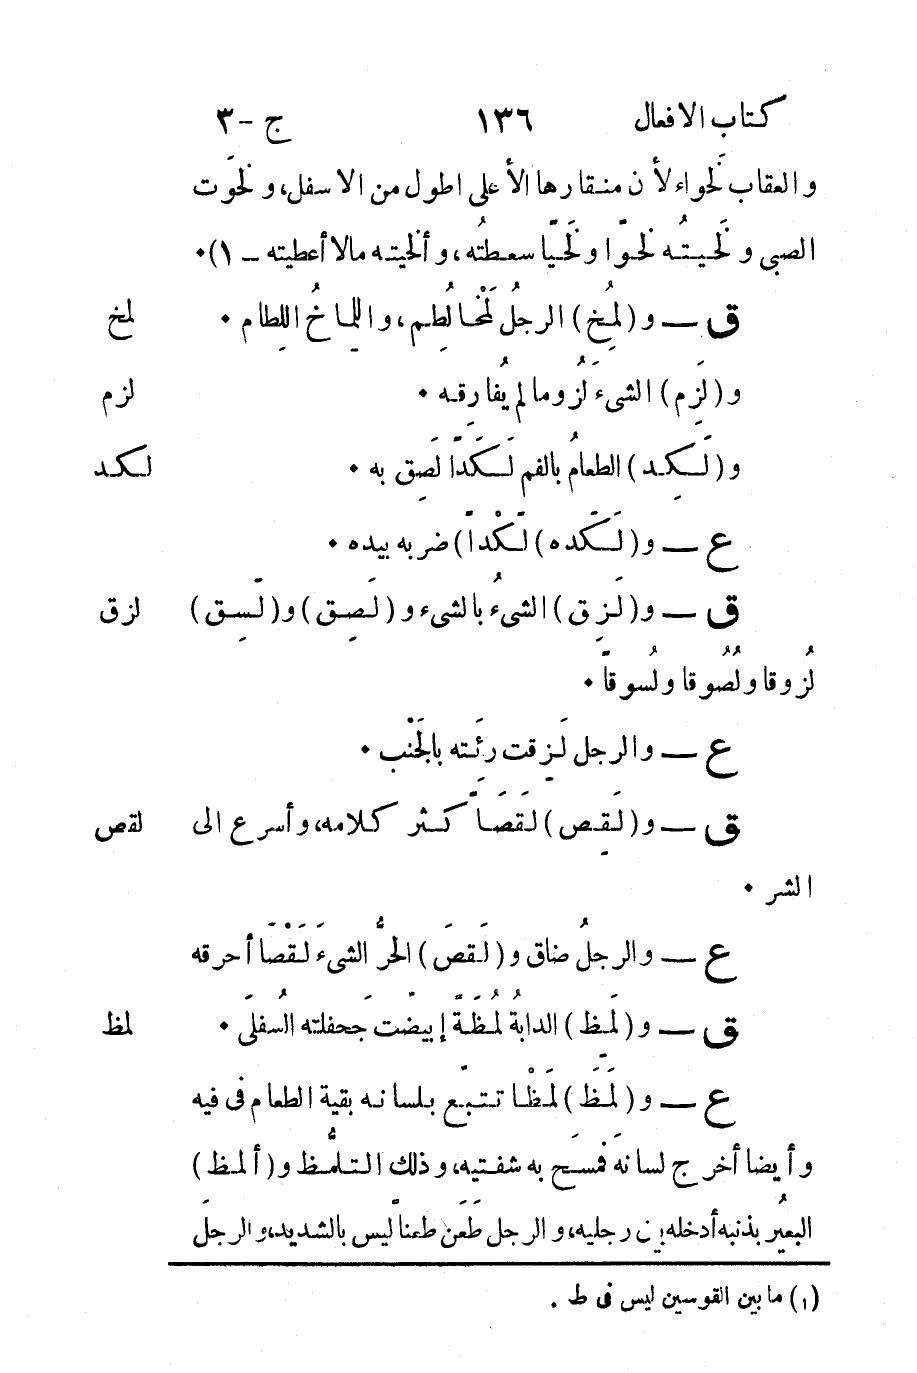 كتاب الافعال ١٣٦ ج -٣
والعقاب لَخواء لأن منقارها الأعلى اطول من الاسفل، و لخَوت
الصبى و لَخَيتُه لخوّا و لَخَيّا سعطتُه، وألخيته مالا أعطيته - ١)٠
ق — و (لُمِخ) الرجلُ لَمْخا لُطِم، واللِماخُ اللِطام ٠ لمخ
و (لَزِم) الشىءَ لُزُوما لم يُفارِقه ٠ لزم
و (لَكِد) الطعامُ بالفم لَكَدًا لَصِق به ٠ لكد
ع — و (لَكَده) لَكْدًا) ضربه بيده ٠
ق — و (لَزِق) الشىءُ بالشىء و (لَصِق) و (لَسِق) لزق
لُزوقا ولُصُوقا ولُسوقًا ٠
ع — والرجل لَزِقت رِئَته بالجَنْب ٠
ق — و (لَقِص) لَقَصًا كثر كلامه، وأسرع الى لقص
الشر ٠
ع — والرجلُ ضاق و (لَقصَ) الحرُّ الشىءَ لَقْصًا أحرقه
ق — و (لَمِظ) الدابةُ لُمظَةً إبيضّت جَحفلته السُفلَى ٠ لمظ
ع — و (لَمَظَ) لَمْظًا تتبّع بلسانه بقية الطعام فى فيه
وأيضا أخرج لسانَه فمسَح به شفتيه، وذلك التلمُّظ و (ألمظ)
البعيُر بذنبه أدخله بين رجليه، والرجل طَعَن طعناً ليس بالشديد، والرجلَ
(١) ما بين القوسين ليس فى ط .